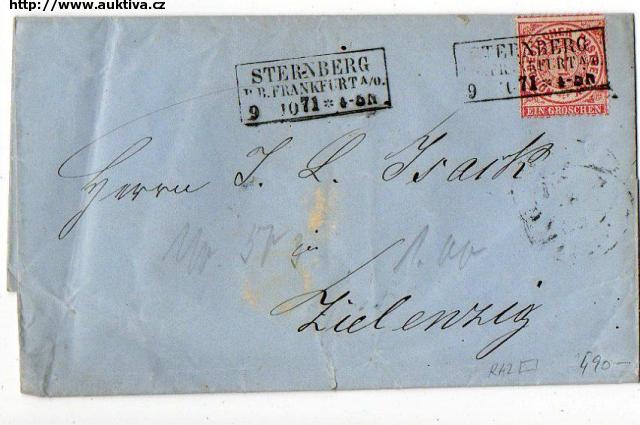 http://www.auktiva.cz
STERNBERG
R.B. FRANKFURT A/O.
9 10 71 * 4-5N
STERNBERG
FRANKFURT A/O
9 71 * 4-5N
EIN GROSCHEN
Herrn J. L. Isaak
in
Zielenzig
490-